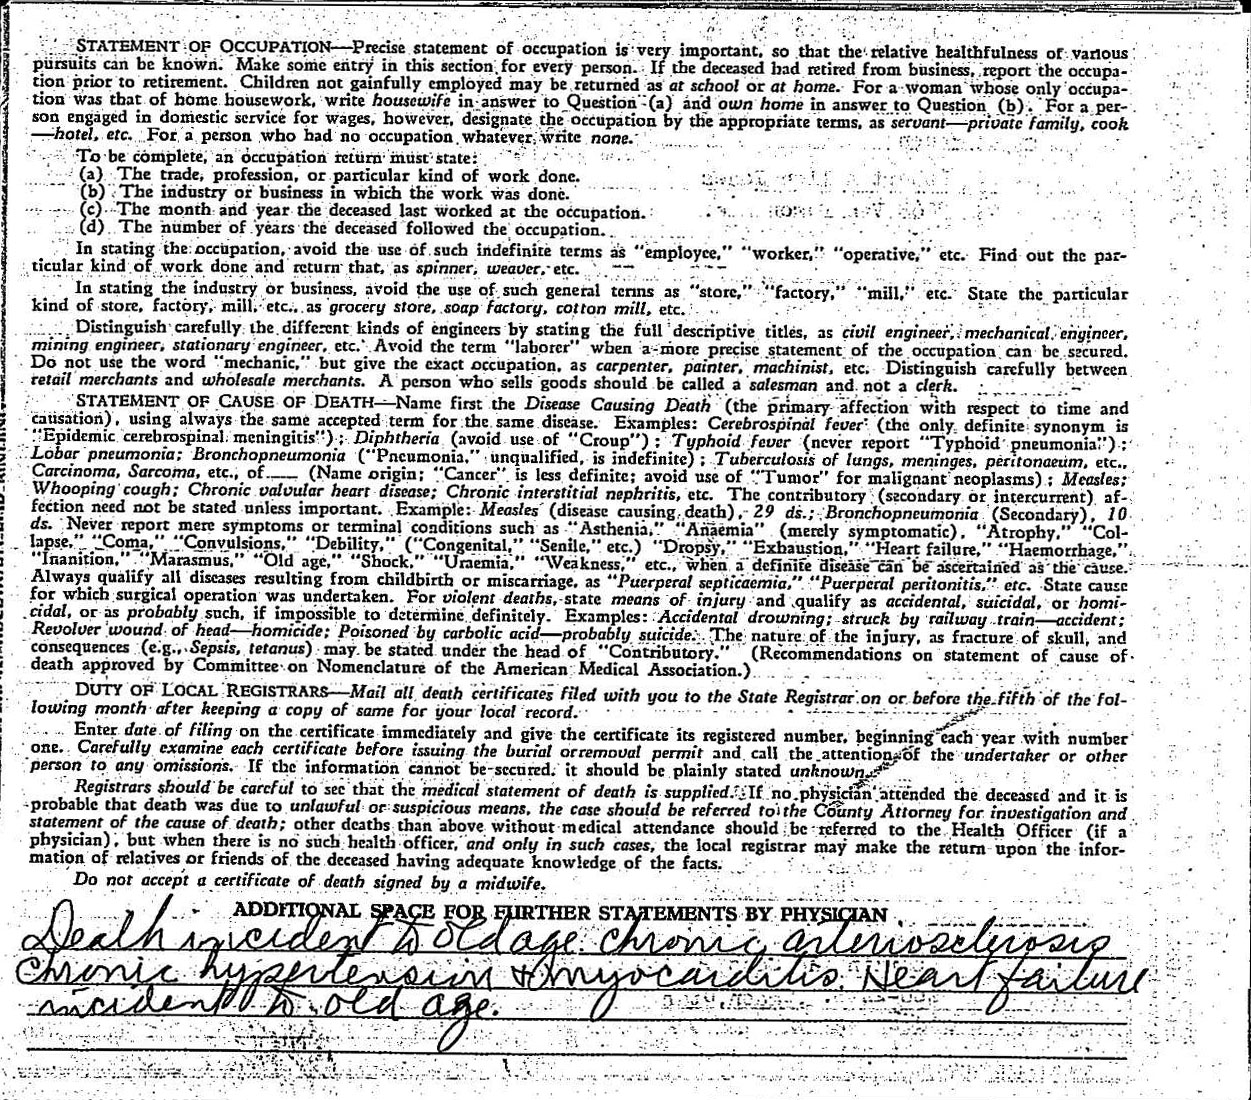 STATEMENT OF OCCUPATION—Precise statement of occupation is very important, so that the relative healthfulness of various
pursuits can be known. Make some entry in this section for every person. If the deceased had retired from business, report the occupa-
tion prior to retirement. Children not gainfully employed may be returned as at school or at home. For a woman whose only occupa-
tion was that of home housework, write housewife in answer to Question (a) and own home in answer to Question (b). For a per-
son engaged in domestic service for wages, however, designate the occupation by the appropriate terms, as servant—private family, cook
—hotel, etc. For a person who had no occupation whatever, write none.
To be complete, an occupation return must state:
(a) The trade, profession, or particular kind of work done.
(b) The industry or business in which the work was done.
(c) The month and year the deceased last worked at the occupation.
(d) The number of years the deceased followed the occupation.
In stating the occupation, avoid the use of such indefinite terms as "employee," "worker," "operative," etc. Find out the par-
ticular kind of work done and return that, as spinner, weaver, etc.
In stating the industry or business, avoid the use of such general terms as "store," "factory," "mill," etc. State the particular
kind of store, factory, mill, etc., as grocery store, soap factory, cotton mill, etc.
Distinguish carefully the different kinds of engineers by stating the full descriptive titles, as civil engineer, mechanical engineer,
mining engineer, stationary engineer, etc. Avoid the term "laborer" when a more precise statement of the occupation can be secured.
Do not use the word "mechanic," but give the exact occupation, as carpenter, painter, machinist, etc. Distinguish carefully between
retail merchants and wholesale merchants. A person who sells goods should be called a salesman and not a clerk.
STATEMENT OF CAUSE OF DEATH—Name first the Disease Causing Death (the primary affection with respect to time and
causation), using always the same accepted term for the same disease. Examples: Cerebrospinal fever (the only definite synonym is
"Epidemic cerebrospinal meningitis"); Diphtheria (avoid use of "Croup"); Typhoid fever (never report "Typhoid pneumonia");
Lobar pneumonia; Bronchopneumonia ("Pneumonia," unqualified, is indefinite); Tuberculosis of lungs, meninges, peritonaeum, etc.,
Carcinoma, Sarcoma, etc., of____ (Name origin; "Cancer" is less definite; avoid use of "Tumor" for malignant neoplasms); Measles;
Whooping cough; Chronic valvular heart disease; Chronic interstitial nephritis, etc. The contributory (secondary or intercurrent) af-
fection need not be stated unless important. Example: Measles (disease causing death), 29 ds.; Bronchopneumonia (Secondary), 10
ds. Never report mere symptoms or terminal conditions such as "Asthenia," "Anaemia" (merely symptomatic), "Atrophy," "Col-
lapse," "Coma," "Convulsions," "Debility," ("Congenital," "Senile," etc.) "Dropsy," "Exhaustion," "Heart failure," "Haemorrhage,"
"Inanition," "Marasmus," "Old age," "Shock," "Uraemia," "Weakness," etc., when a definite disease can be ascertained as the cause.
Always qualify all diseases resulting from childbirth or miscarriage, as "Puerperal septicaemia," "Puerperal peritonitis," etc. State cause
for which surgical operation was undertaken. For violent deaths, state means of injury and qualify as accidental, suicidal, or homi-
cidal, or as probably such, if impossible to determine definitely. Examples: Accidental drowning; struck by railway train—accident;
Revolver wound of head—homicide; Poisoned by carbolic acid—probably suicide. The nature of the injury, as fracture of skull, and
consequences (e.g., Sepsis, tetanus) may be stated under the head of "Contributory." (Recommendations on statement of cause of
death approved by Committee on Nomenclature of the American Medical Association.)
DUTY OF LOCAL REGISTRARS—Mail all death certificates filed with you to the State Registrar on or before the fifth of the fol-
lowing month after keeping a copy of same for your local record.
Enter date of filing on the certificate immediately and give the certificate its registered number, beginning each year with number
one. Carefully examine each certificate before issuing the burial or removal permit and call the attention of the undertaker or other
person to any omissions. If the information cannot be secured, it should be plainly stated unknown.
Registrars should be careful to see that the medical statement of death is supplied. If no physician attended the deceased and it is
probable that death was due to unlawful or suspicious means, the case should be referred to the County Attorney for investigation and
statement of the cause of death; other deaths than above without medical attendance should be referred to the Health Officer (if a
physician), but when there is no such health officer, and only in such cases, the local registrar may make the return upon the infor-
mation of relatives or friends of the deceased having adequate knowledge of the facts.
Do not accept a certificate of death signed by a midwife.
ADDITIONAL SPACE FOR FURTHER STATEMENTS BY PHYSICIAN
Death incident to old age. chronic arteriosclerosis
chronic hypertension & myocarditis. Heart failure
incident to old age.